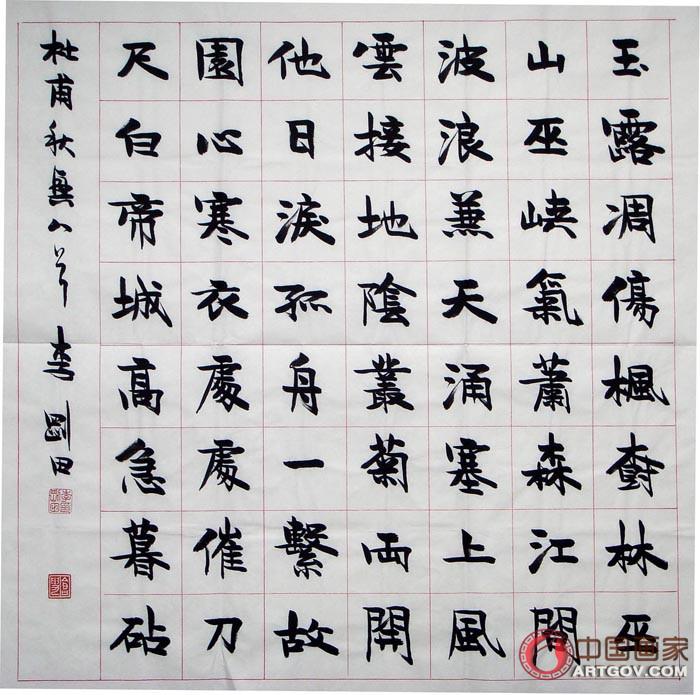 玉露凋傷楓樹林巫
山巫峽氣蕭森江間
波浪兼天涌塞上風
雲接地陰叢菊兩開
他日淚孤舟一繫故
園心寒衣處處催刀
尺白帝城高急暮砧
杜甫秋興八首 李剛田
中国画家
ARTGOV.COM